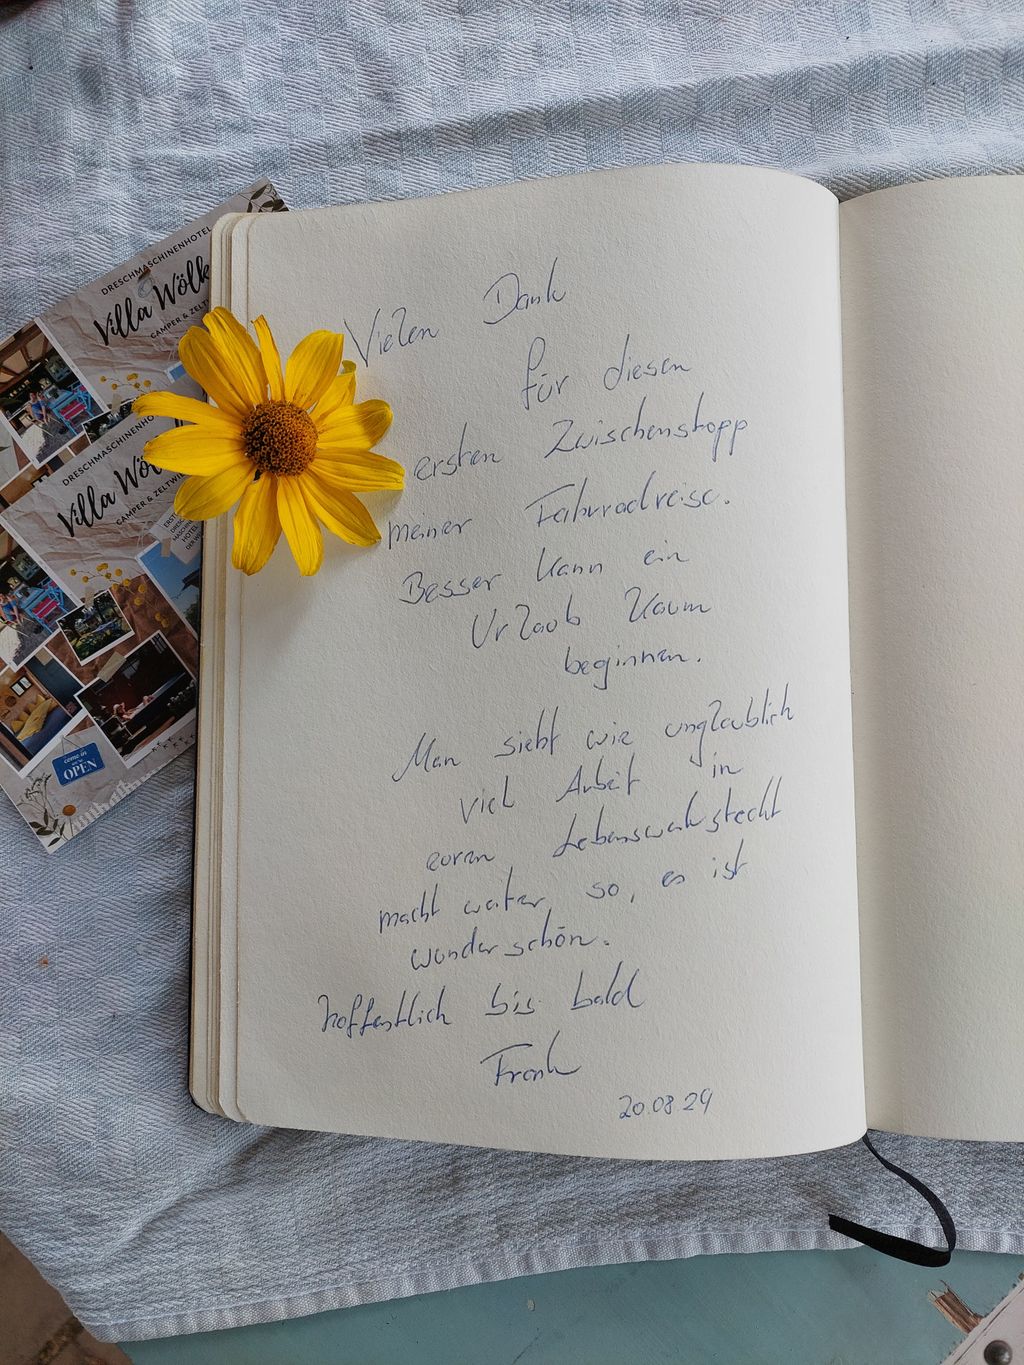 DRESCHMASCHINENHOTEL
Villa Wölk
CAMPER & ZELTW
DRESCHMASCHINENHO
Villa Wöl
CAMPER & ZELTWIE
come in
OPEN
Vielen Dank
für diesen
ersten Zwischenstopp
meiner Fahrradreise.
Besser kann ein
Urlaub kaum
beginnen.
Man sieht wie unglaublich
viel Arbeit in
euren Lebenswerk steckt
macht weiter so, es ist
wunderschön.
hoffentlich bis bald
Frank
20.08.24